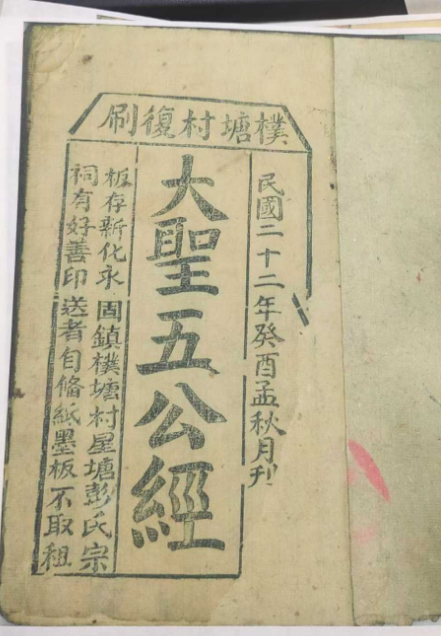 樸塘村復刷
民國二十二年癸酉孟秋月刊
大聖五公經
板存新化永固鎮樸塘村星塘彭氏宗
祠有好善印送者自俻紙墨板不取租